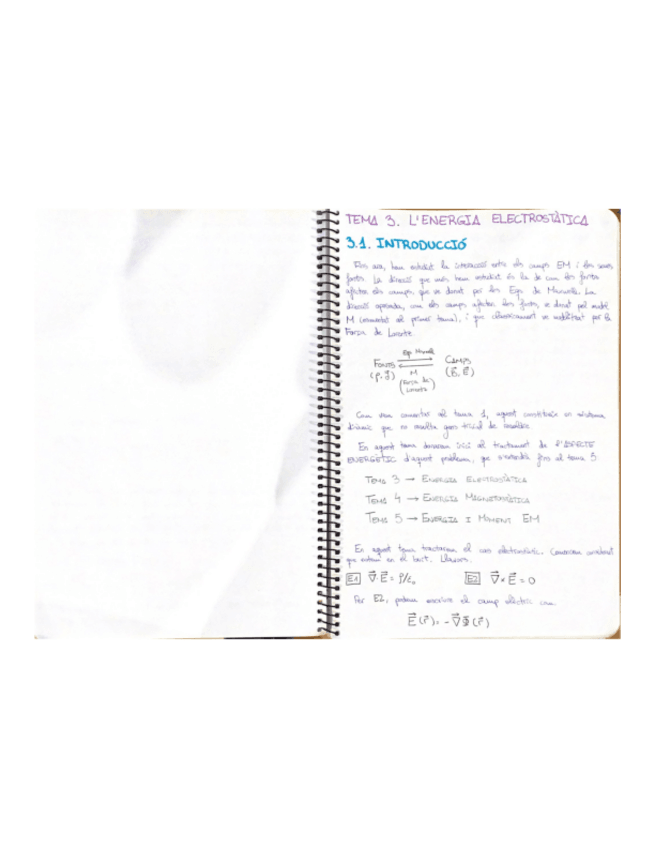 TEMA 3. L'ENERGIA ELECTROSTÀTICA
3.1. INTRODUCCIÓ
Fins ara, hem estudiat la interacció entre els camps EM i les seves
fonts. La direcció que més hem estudiat és la de com les fonts
afecten els camps, que ve donat per les Eqs de Maxwell. La
direcció oposada, com els camps afecten les fonts, ve donat pel
M (comentat al primer tema), i que clàssicament ve per la
Força de Lorentz.
Eqs Maxwell
FONTS CAMPS
(ρ, J⃗) M (B⃗, E⃗)
(Força de
Lorentz)
Com vam comentar al tema 1, aquest constitueix un sistema
dinàmic que no resulta gens trivial de resoldre.
En aquest tema donarem inici al tractament de l'ASPECTE
ENERGÈTIC d'aquest problema, que s'estendrà fins al tema 5.
TEMA 3 → ENERGIA ELECTROSTÀTICA
TEMA 4 → ENERGIA MAGNETOSTÀTICA
TEMA 5 → ENERGIA I MOMENT EM
En aquest tema tractarem el cas electrostàtic. Comencem
que estem en el buit. Llavors,
E1 ∇⃗·E⃗ = ρ/ε₀ E2 ∇⃗×E⃗ = 0
Per E2, podem escriure el camp elèctric com
E⃗(r⃗) = -∇⃗Φ(r⃗)